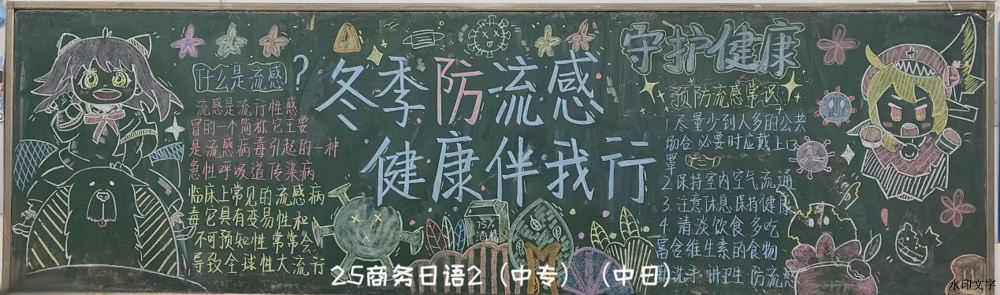 什么是流感？
流感是流行性感
冒的一个简称它主要
是流感病毒引起的一种
急性呼吸道传染病
临床上常见的流感病
毒它具有变易性和
不可预知性常常会
导致全球性大流行
冬季防流感
健康伴我行
75%
酒精
守护健康
预防流感常识
1.尽量少到人多的公共
场合必要时应戴上口
罩
2.保持室内空气流通
3.注意休息保持健康
4.清淡饮食多吃
富含维生素的食物
洗手讲卫生防流感
25商务日语2（中专）（中日）
水印文字